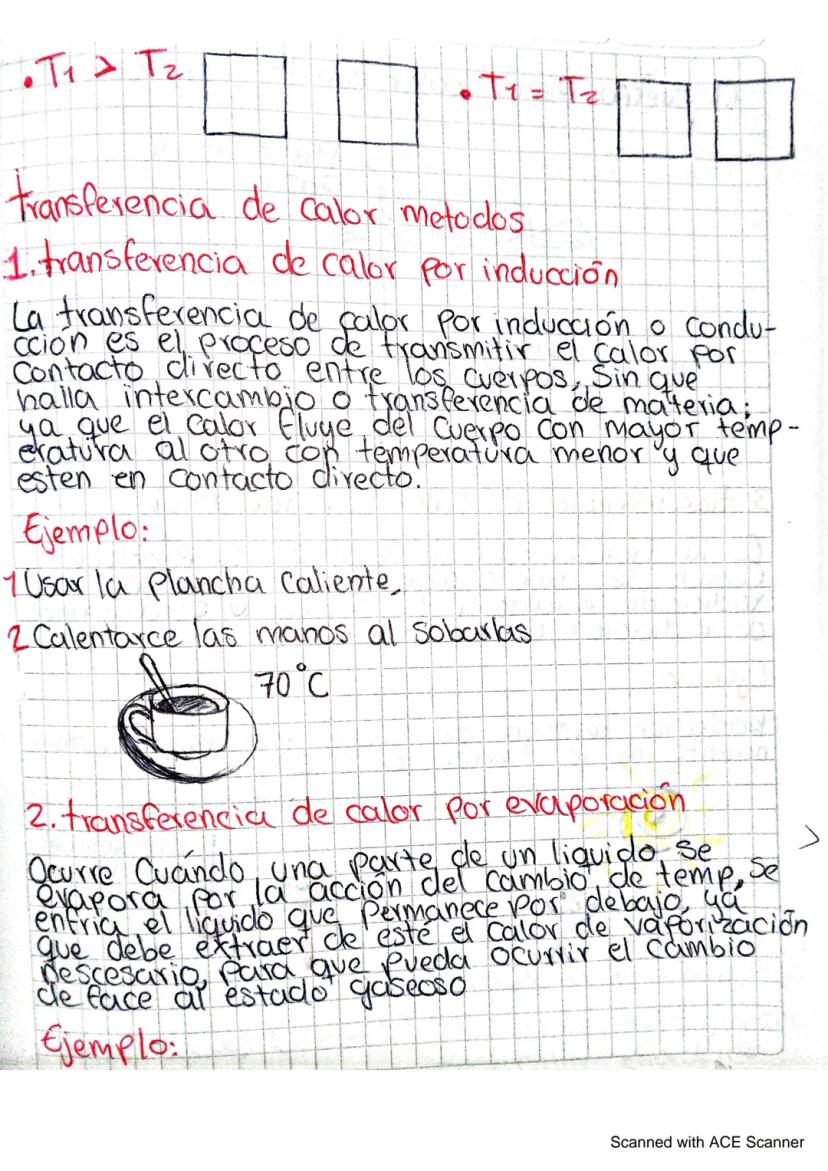 • T1 > T2
• T1 = T2
transferencia de calor metodos
1. transferencia de calor por inducción
La transferencia de calor por inducción o condu-
cción es el proceso de transmitir el calor por
contacto directo entre los cuerpos, sin que
halla intercambio o transferencia de materia;
ya que el calor fluye del cuerpo con mayor temp-
eratura al otro con temperatura menor y que
esten en contacto directo.
Ejemplo:
1 Usar la plancha caliente,
2 Calentarce las manos al sobarlas
70°C
2. transferencia de calor por evaporación
Ocurre Cuándo una parte de un liquido se
evapora por la acción del cambio de temp, se
enfria el liquido que permanece por debajo, ya
que debe extraer de este el calor de vaporización
nescesario, para que pueda ocurrir el cambio
de face al estado gaseoso
Ejemplo:
Scanned with ACE Scanner